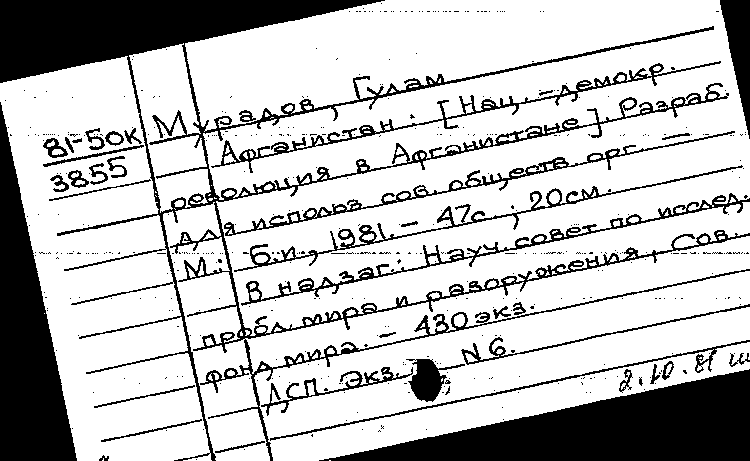 81-50к
3855
Мурадов, Гулам
Афганистан: [Нац.-демокр.
революция в Афганистане]. Разраб.
для использ сов. обществ. орг. —
М.: Б.и., 1981. - 47с.; 20см.
В надзаг.: Науч. совет по исслед.
пробл. мира и разоружения, Сов.
фонд мира. - 430 экз.
ДСП. Экз. N 6.
2.10.81